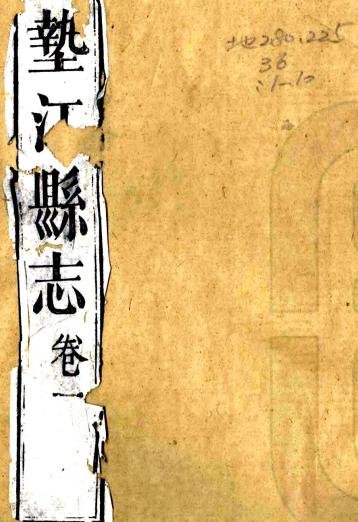 墊江縣志 卷一
地280.225
36
:1-10